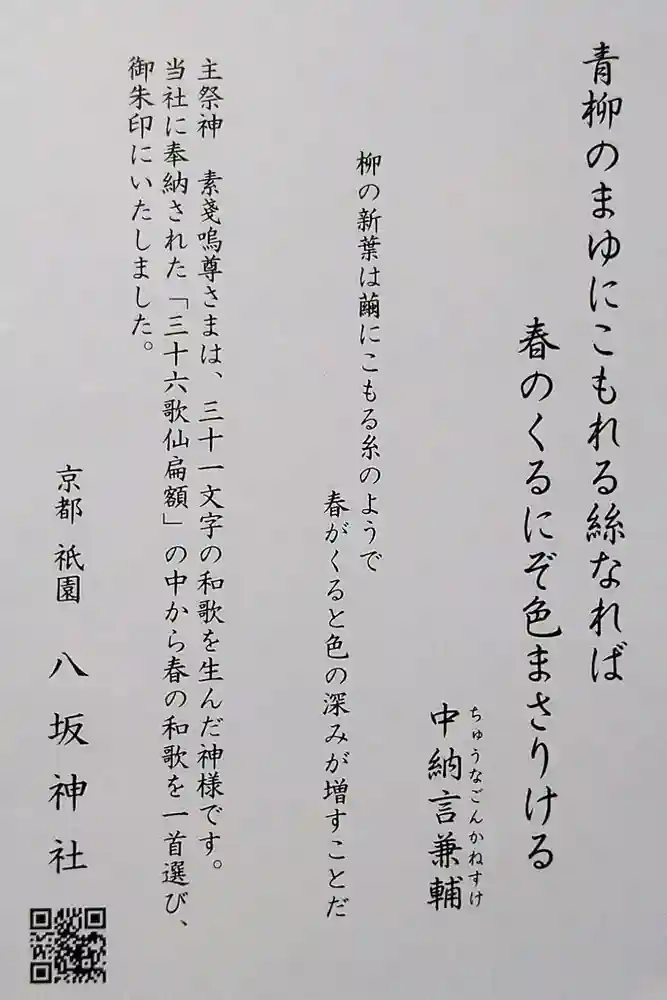 青柳のまゆにこもれる絲なれば
春のくるにぞ色まさりける
ちゅうなごんかねすけ
中納言兼輔
柳の新葉は繭にこもる糸のようで
春がくると色の深みが増すことだ
主祭神　素戔嗚尊さまは、三十一文字の和歌を生んだ神様です。
当社に奉納された「三十六歌仙扁額」の中から春の和歌を一首選び、
御朱印にいたしました。
京都 祇園 八坂神社